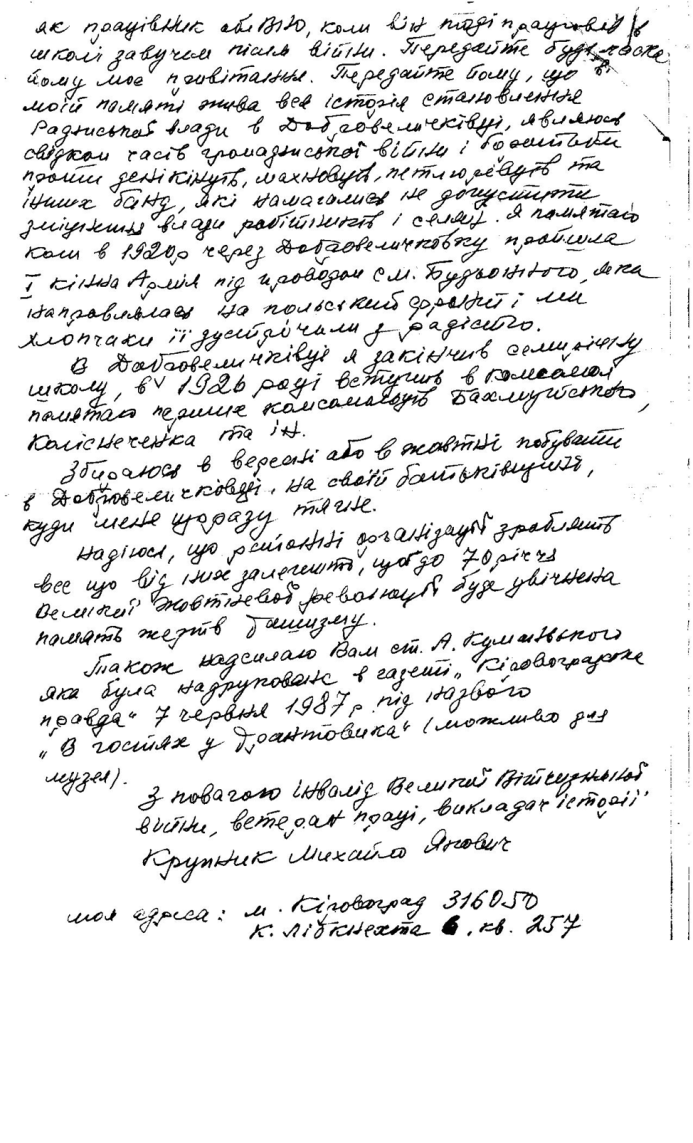 як працівник облВНО, коли він тоді працював в
школі завучем після війни. Передайте будь ласка
йому моє привітання. Передайте йому, що в
моїй памяті жива вся історія становлення
Радянської влади в Добровеличківці, являюсь
свідком часів громадянської війни і боротьби
проти денікінців, махновців, петлюрівців та
інших банд, які намагались не допустити
зміцнення влади робітників і селян. Я памятаю
коли в 1920р через Добровеличковку пройшла
I кінна Армія під проводом см. Будьонного, яка
направлялась на польський фронт і ми
хлопчаки її зустрічали з радістю.
В Добровеличківці я закінчив семирічну
школу, в 1926 році вступив в комсомол
памятаю перших комсомольців Бахмутського,
Колісниченка та ін.
Збираюсь в вересні або в жовтні побувати
в Добровеличківці, на своїй батьківщині,
куди мене щоразу тягне.
Надіюся, що районні організації зроблять
все що від них залежить, щоб до 70 річчя
Великої Жовтневої революції буде увічнена
память жертв фашизму.
Також надсилаю Вам ст. А. Куманського
яка була надрукована в газеті "Кіровоградська
правда" 7 червня 1987р під назвою
"В гостях у фронтовика" (можливо для
музея).
З повагою інвалід Великої Вітчизняної
війни, ветеран праці, викладач історії
Крупник Михайло Янович
моя адреса: м. Кіровоград 316050
К. Лібкнехта 6, кв. 257